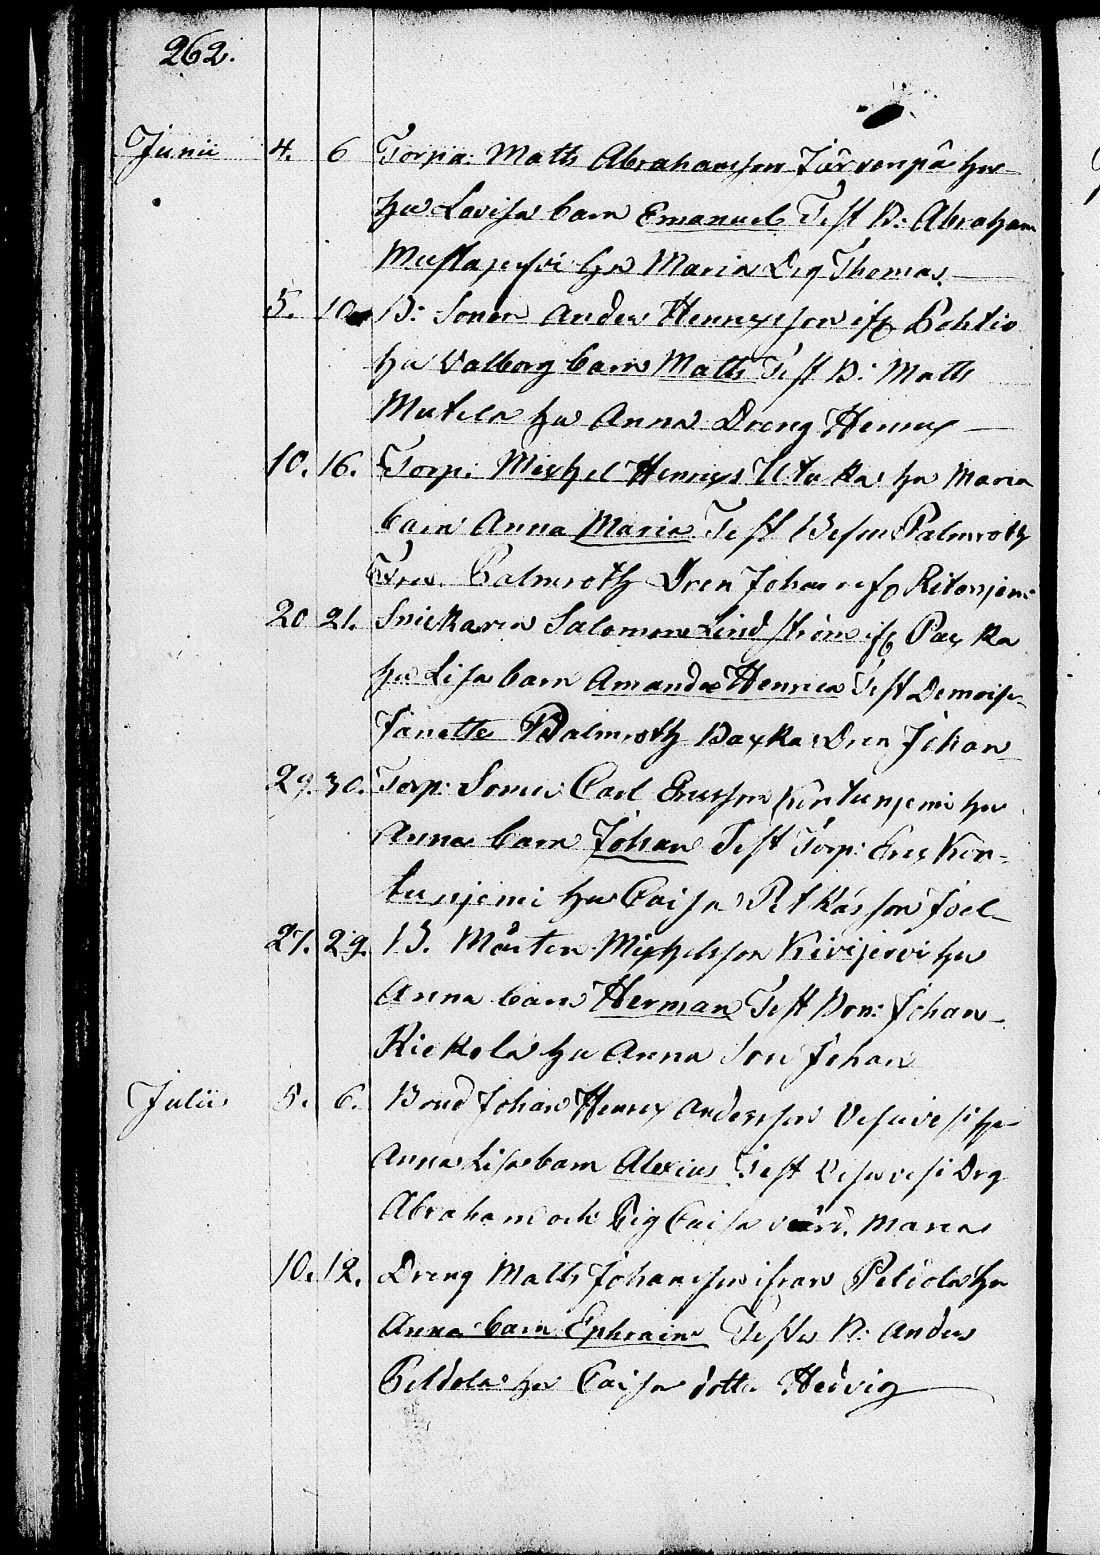 262.
Junii 4. 6 Torpa: Matts Abrahamsson Järvenpä hu
hu Lovisa barn Emanuel Test B: Abraham
Mustajerfvi hu Maria Drg Thomas.
5. 10 B: Sonen Anders Henrysson ifr Pohtio
hu Valborg barn Matts Test B: Matts
Mutila hu Anna Dreng Henrey
10. 16. Torp: Michel Henreys hu Maria
barn Anna Maria Test Palmroth
Palmroth Dren Johan
20 21. Snickaren Salomon Lindström ifr
hu Lisa barn Amanda Henrica Test Demois
Palmroth Dren Johan
29. 30. Torp: Sonen Carl Ericsson Kortunjemi hu
Anna barn Johan Test Torp: Eric Kor-
tunjemi hu Caisa Joel
27. 29. B. Mårten Michelsson Kivijervi hu
Anna barn Herman Test Bon: Johan
Kickola hu Anna Son Johan
Julii 5. 6. Bond Johan Henrey Andersson Vesivesi hu
Anna Lisa barn Alexius Test Vesivesi Drg
Abraham och Pig Caisa Maria
10. 12. Dreng Matts Johansson ifrån Peldola hu
Anna barn Ephraim Testes B: Anders
Peldola hu Caisa dotter Hedvig